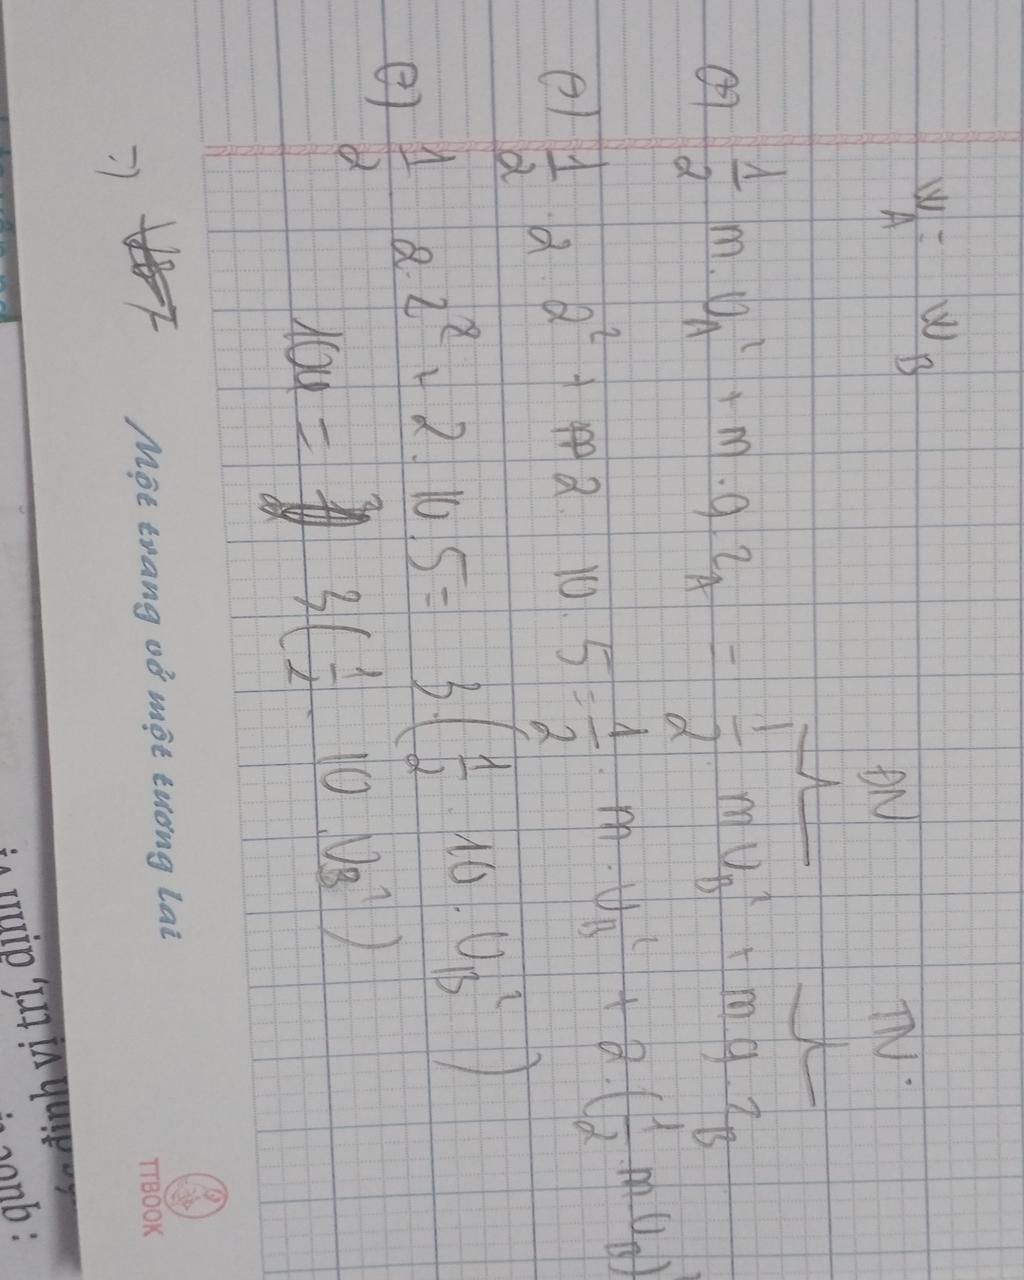 W_A = W_B
ĐN TN.
(+) 1/2 m.v_A² + m.g.z_A = 1/2 m v_B² + m.g.z_B
(+) 1/2 . 2 . 2² + 2 . 10 . 5 = 1/2 . m . v_B² + 2.(1/2 . m v_B²)
(+) 1/2 2.2² + 2.10.5 = 3.(1/2 . 10 . v_B²)
= 3(1/2 . 10 . v_B²)
Một trang vở một tương lai
TTBOOK
định vị trí, định vị
: quốc